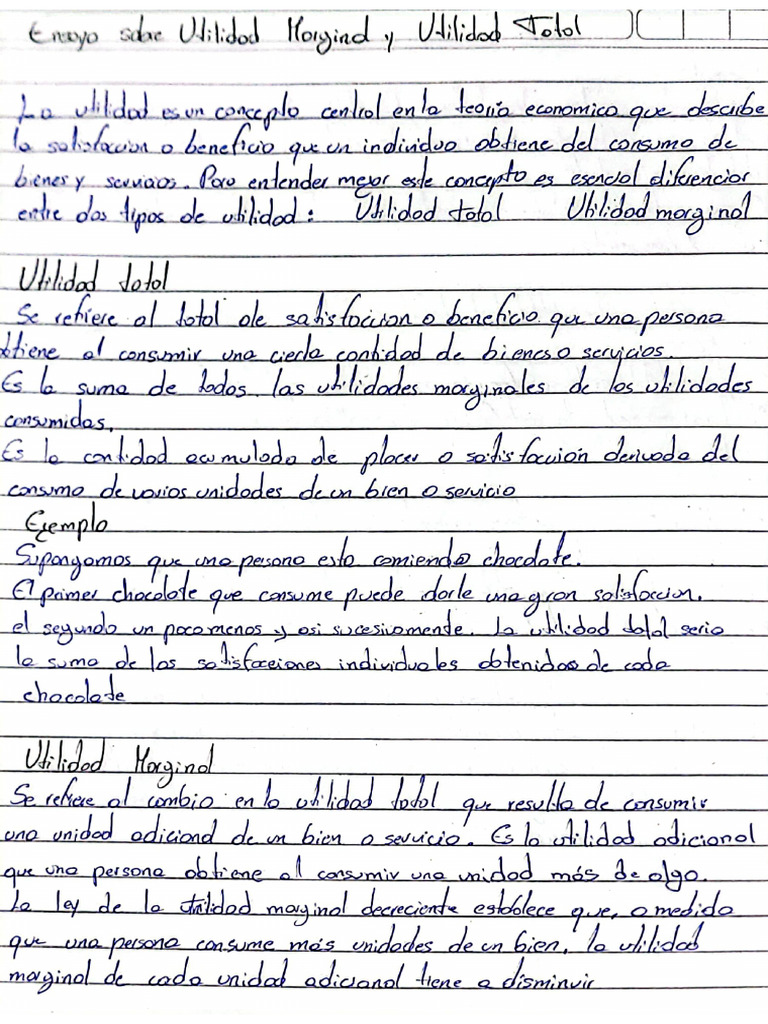 Ensayo sobre Utilidad Marginal y Utilidad Total
La utilidad es un concepto central en la teoria economica que describe
la satisfaccion o beneficio que un individuo obtiene del consumo de
bienes y servicios. Para entender mejor este concepto es esencial diferenciar
entre dos tipos de utilidad: Utilidad total Utilidad marginal
Utilidad total
Se refiere al total de satisfaccion o beneficio que una persona
btiene al consumir una cierta cantidad de bienes o servicios.
Es la suma de todas las utilidades marginales de las utilidades
consumidas.
Es la cantidad acumulada de placer o satisfacción derivada del
consumo de varios unidades de un bien o servicio
Ejemplo
Supongamos que una persona esta comiendo chocolate.
El primer chocolate que consume puede darle una gran satisfaccion.
el segundo un poco menos y asi sucesivamente. La utilidad total seria
la suma de las satisfacciones individuales obtenidas de cada
chocolate
Utilidad Marginal
Se refiere al cambio en la utilidad total que resulta de consumir
una unidad adicional de un bien o servicio. Es la utilidad adicional
que una persona obtiene al consumir una unidad más de algo.
La ley de la utilidad marginal decreciente establece que, a medida
que una persona consume más unidades de un bien, la utilidad
marginal de cada unidad adicional tiene a disminuir